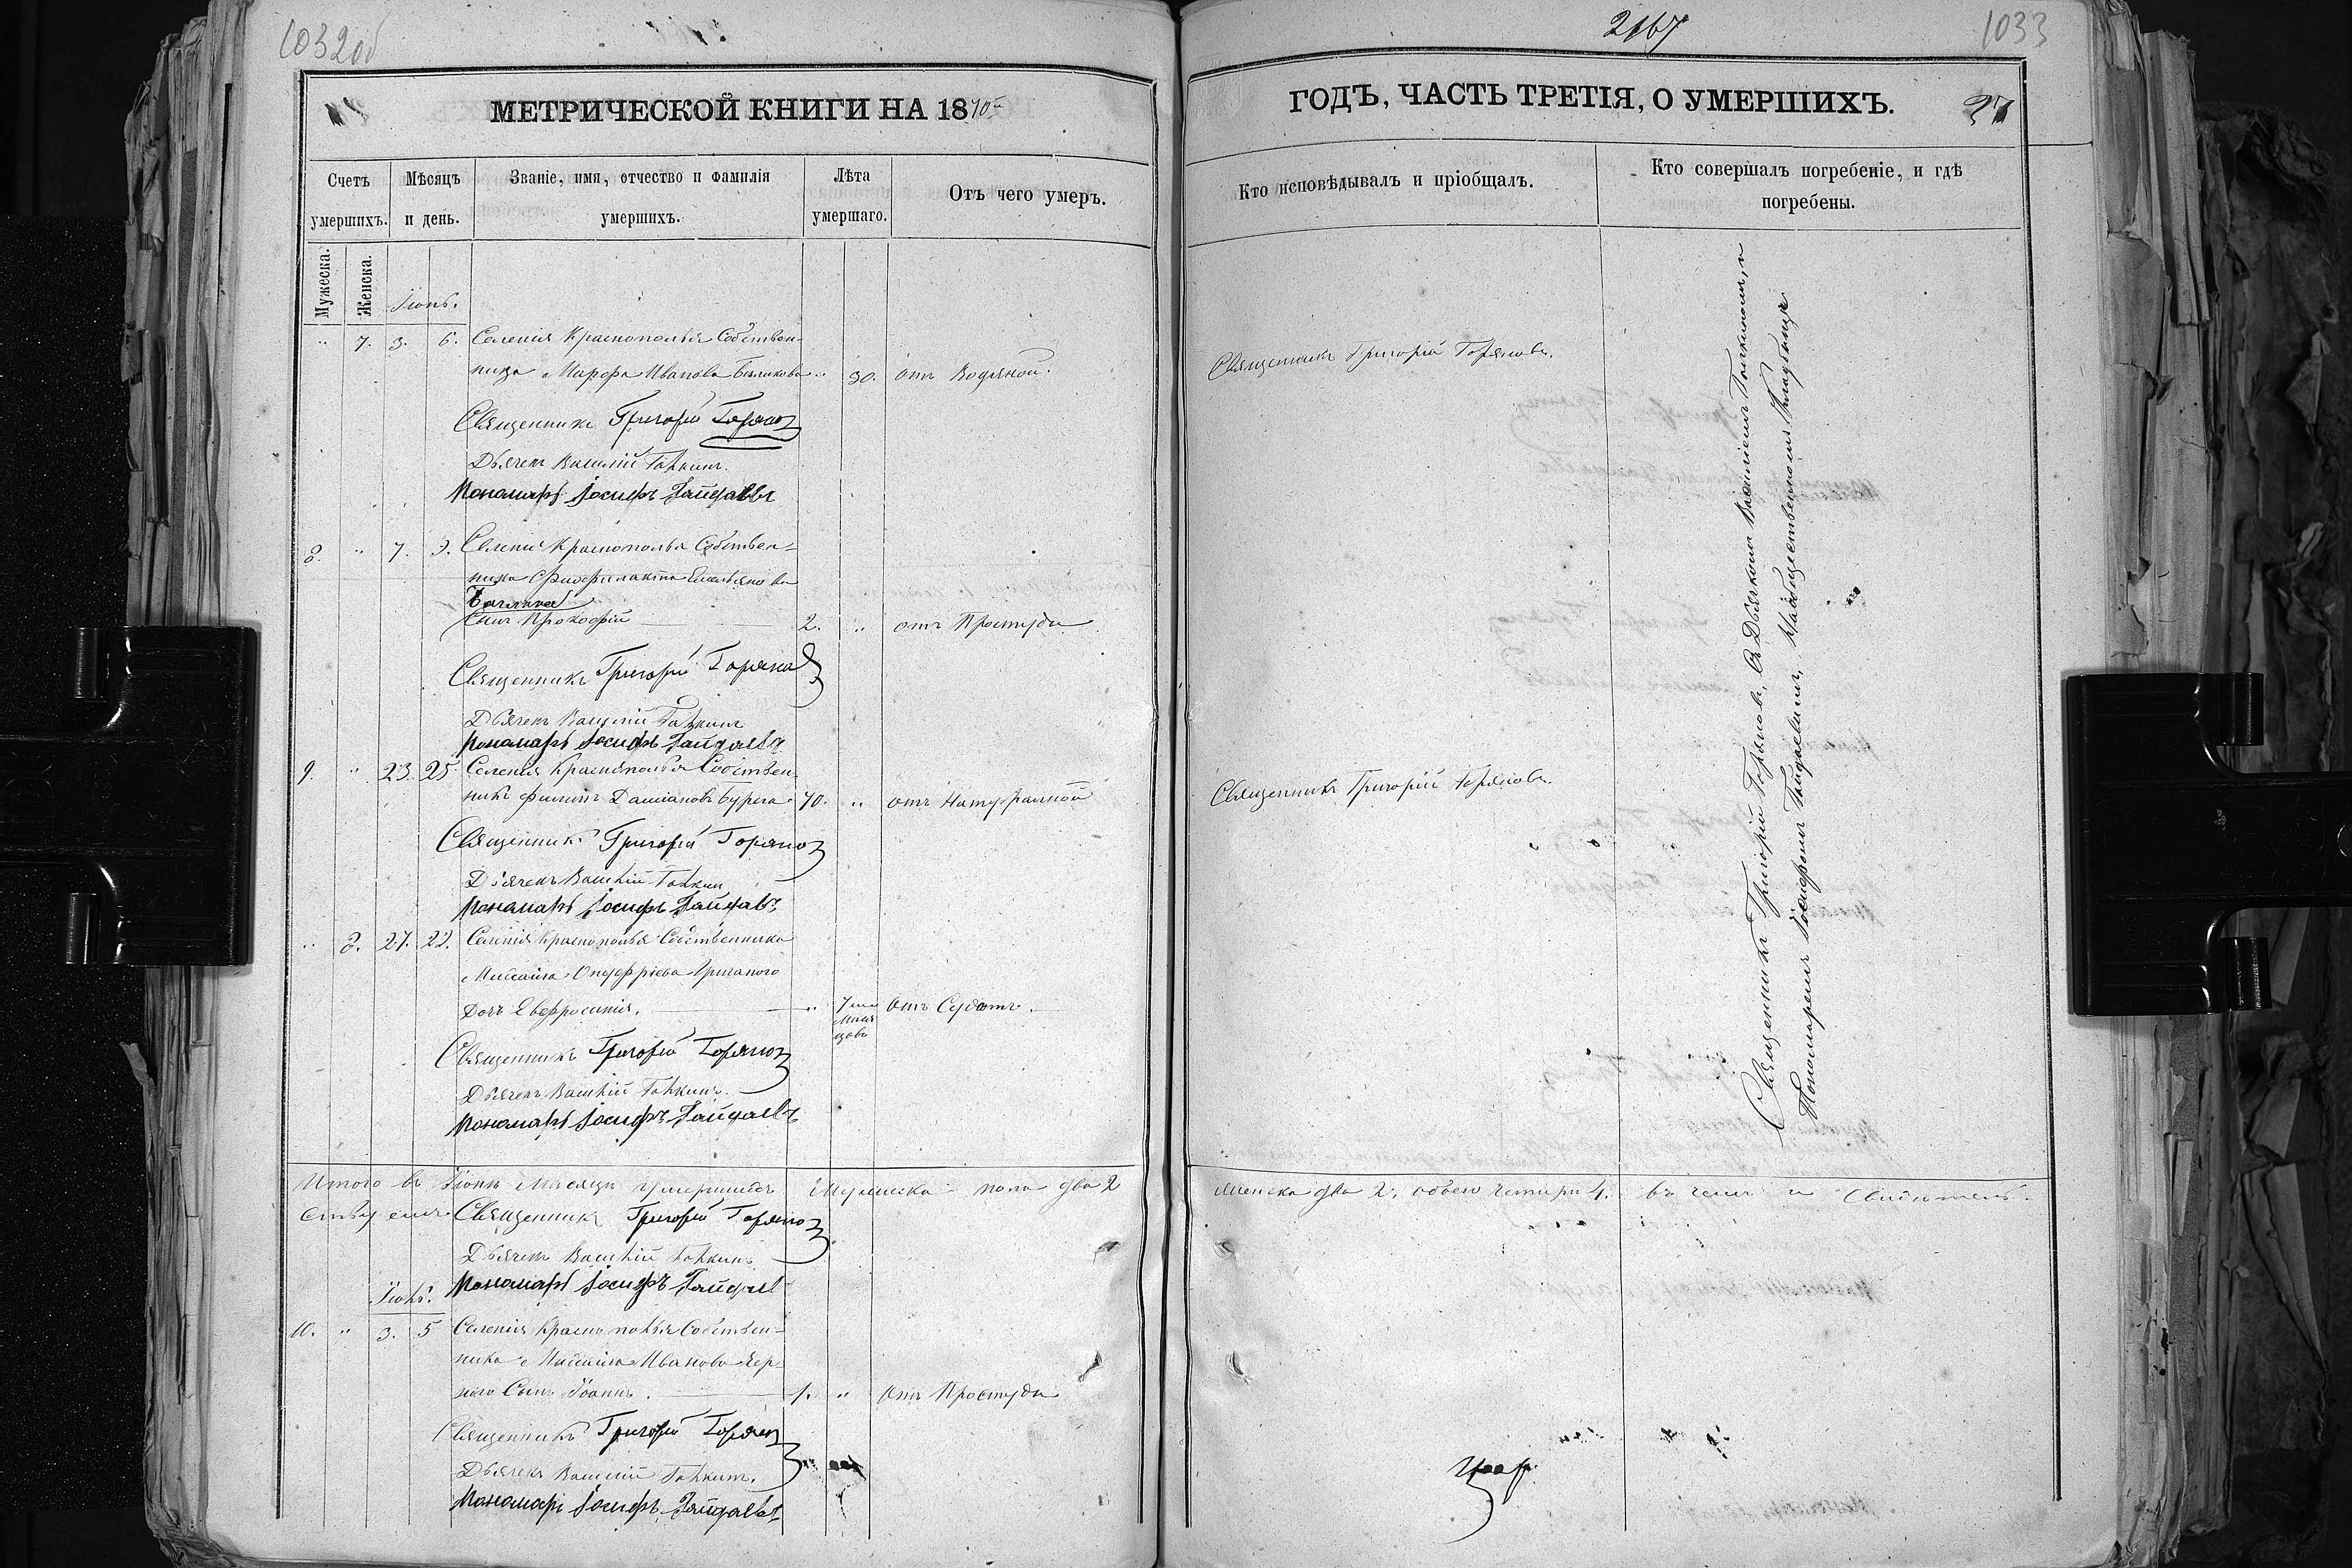 1032об
МЕТРИЧЕСКОЙ КНИГИ НА 1870й
Счетъ умершихъ.
Мѣсяцъ и день.
Званіе, имя, отчество и фамилія умершихъ.
Лѣта умершаго.
Отъ чего умеръ.
Мужеска.
Женска.
Іюнь.
" 7. 3. 6. Селенія Краснополья Собствен-
ница Марфа Иванова 30. отъ Водяной.
Священникъ Григорій Горяновъ
Дьячекъ Василій Голкинъ.
Пономарь Іосифъ Гайдаевъ
8. " 7. 9. Селенія Краснополья Собствен-
ника Феофилакта Емельянова
сынъ Прокофій 2. " отъ Простуды
Священникъ Григорій Горяновъ
Дьячекъ Василій Голкинъ
Пономарь Іосифъ Гайдаевъ
9. " 23. 25. Селенія Краснополья Собствен-
никъ Филипъ Даміановъ Бурега 70. " отъ Натуральной
Священникъ Григорій Горяновъ
Дьячекъ Василій Голкин
Пономарь Іосифъ Гайдаевъ
" 8. 27. 29. Селенія Краснополья Собственника
Михаила Онуфріева
дочь Евфросинія. " 7 ми Мѣся цовъ отъ Сухотъ.
Священникъ Григорій Горяновъ
Дьячекъ Василій Голкинъ.
Пономарь Іосифъ Гайдаевъ
Итого въ Іюнѣ Мѣсяцѣ умершихъ Мужеска пола два 2
Священникъ Григорій Горяновъ
Дьячекъ Василій Голкинъ
Пономарь Іосифъ Гайдаевъ
Іюль.
10. " 3. 5 Селенія Краснополья Собствен-
ника Михаила Иванова Чер-
ного Сынъ Іоаннъ. 1. " отъ Простуды
Священникъ Григорій Горяновъ
Дьячекъ Василій Голкинъ.
Пономарь Іосифъ Гайдаевъ
2167
1033
ГОДЪ, ЧАСТЬ ТРЕТІЯ, О УМЕРШИХЪ.
27
Кто исповѣдывалъ и пріобщалъ.
Кто совершалъ погребеніе, и гдѣ погребены.
Священникъ Григорій Горяновъ.
Священникъ Григорій Горяновъ.
Священникъ Григорій Горяновъ, съ Дьячкомъ Василіемъ Голкиномъ, и
Пономаремъ Іосифомъ Гайдаевымъ, На общественномъ Кладбищѣ
Женска два 2. обоего четыри 4. въ чемъ и